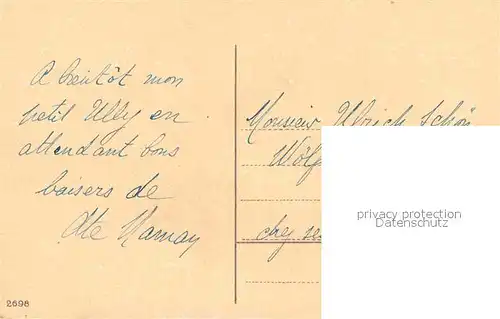 A bientôt mon
petit Ully en
attendant bons
baisers de
Monsieur Ulrich Schön
Wolf
chez
privacy protection
Datenschutz
2698